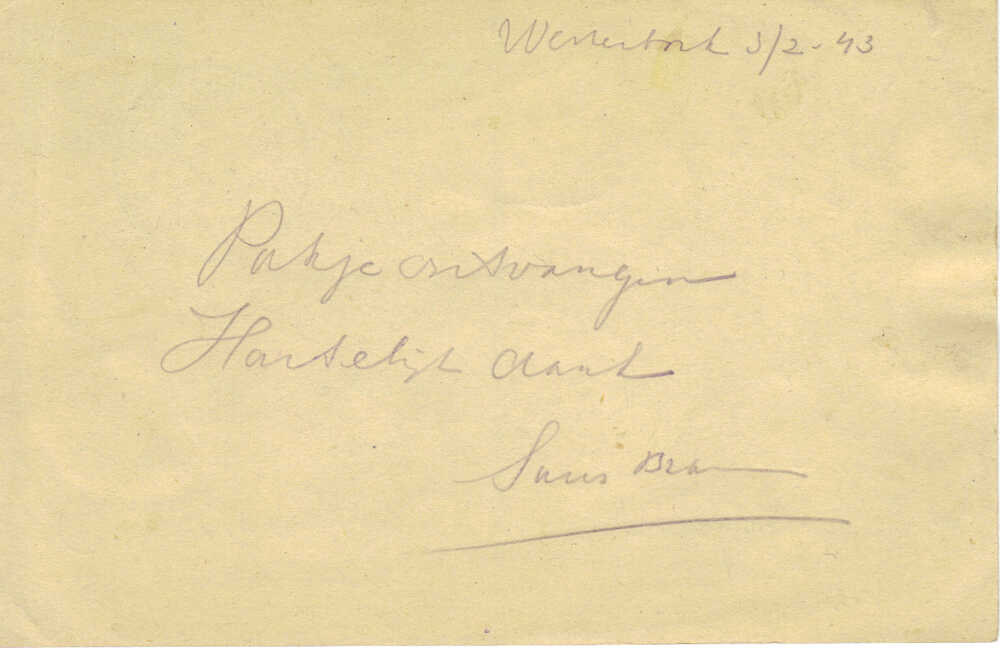 Westerbork 3/2-43
Pakje ontvangen
Hartelijk dank
Bram